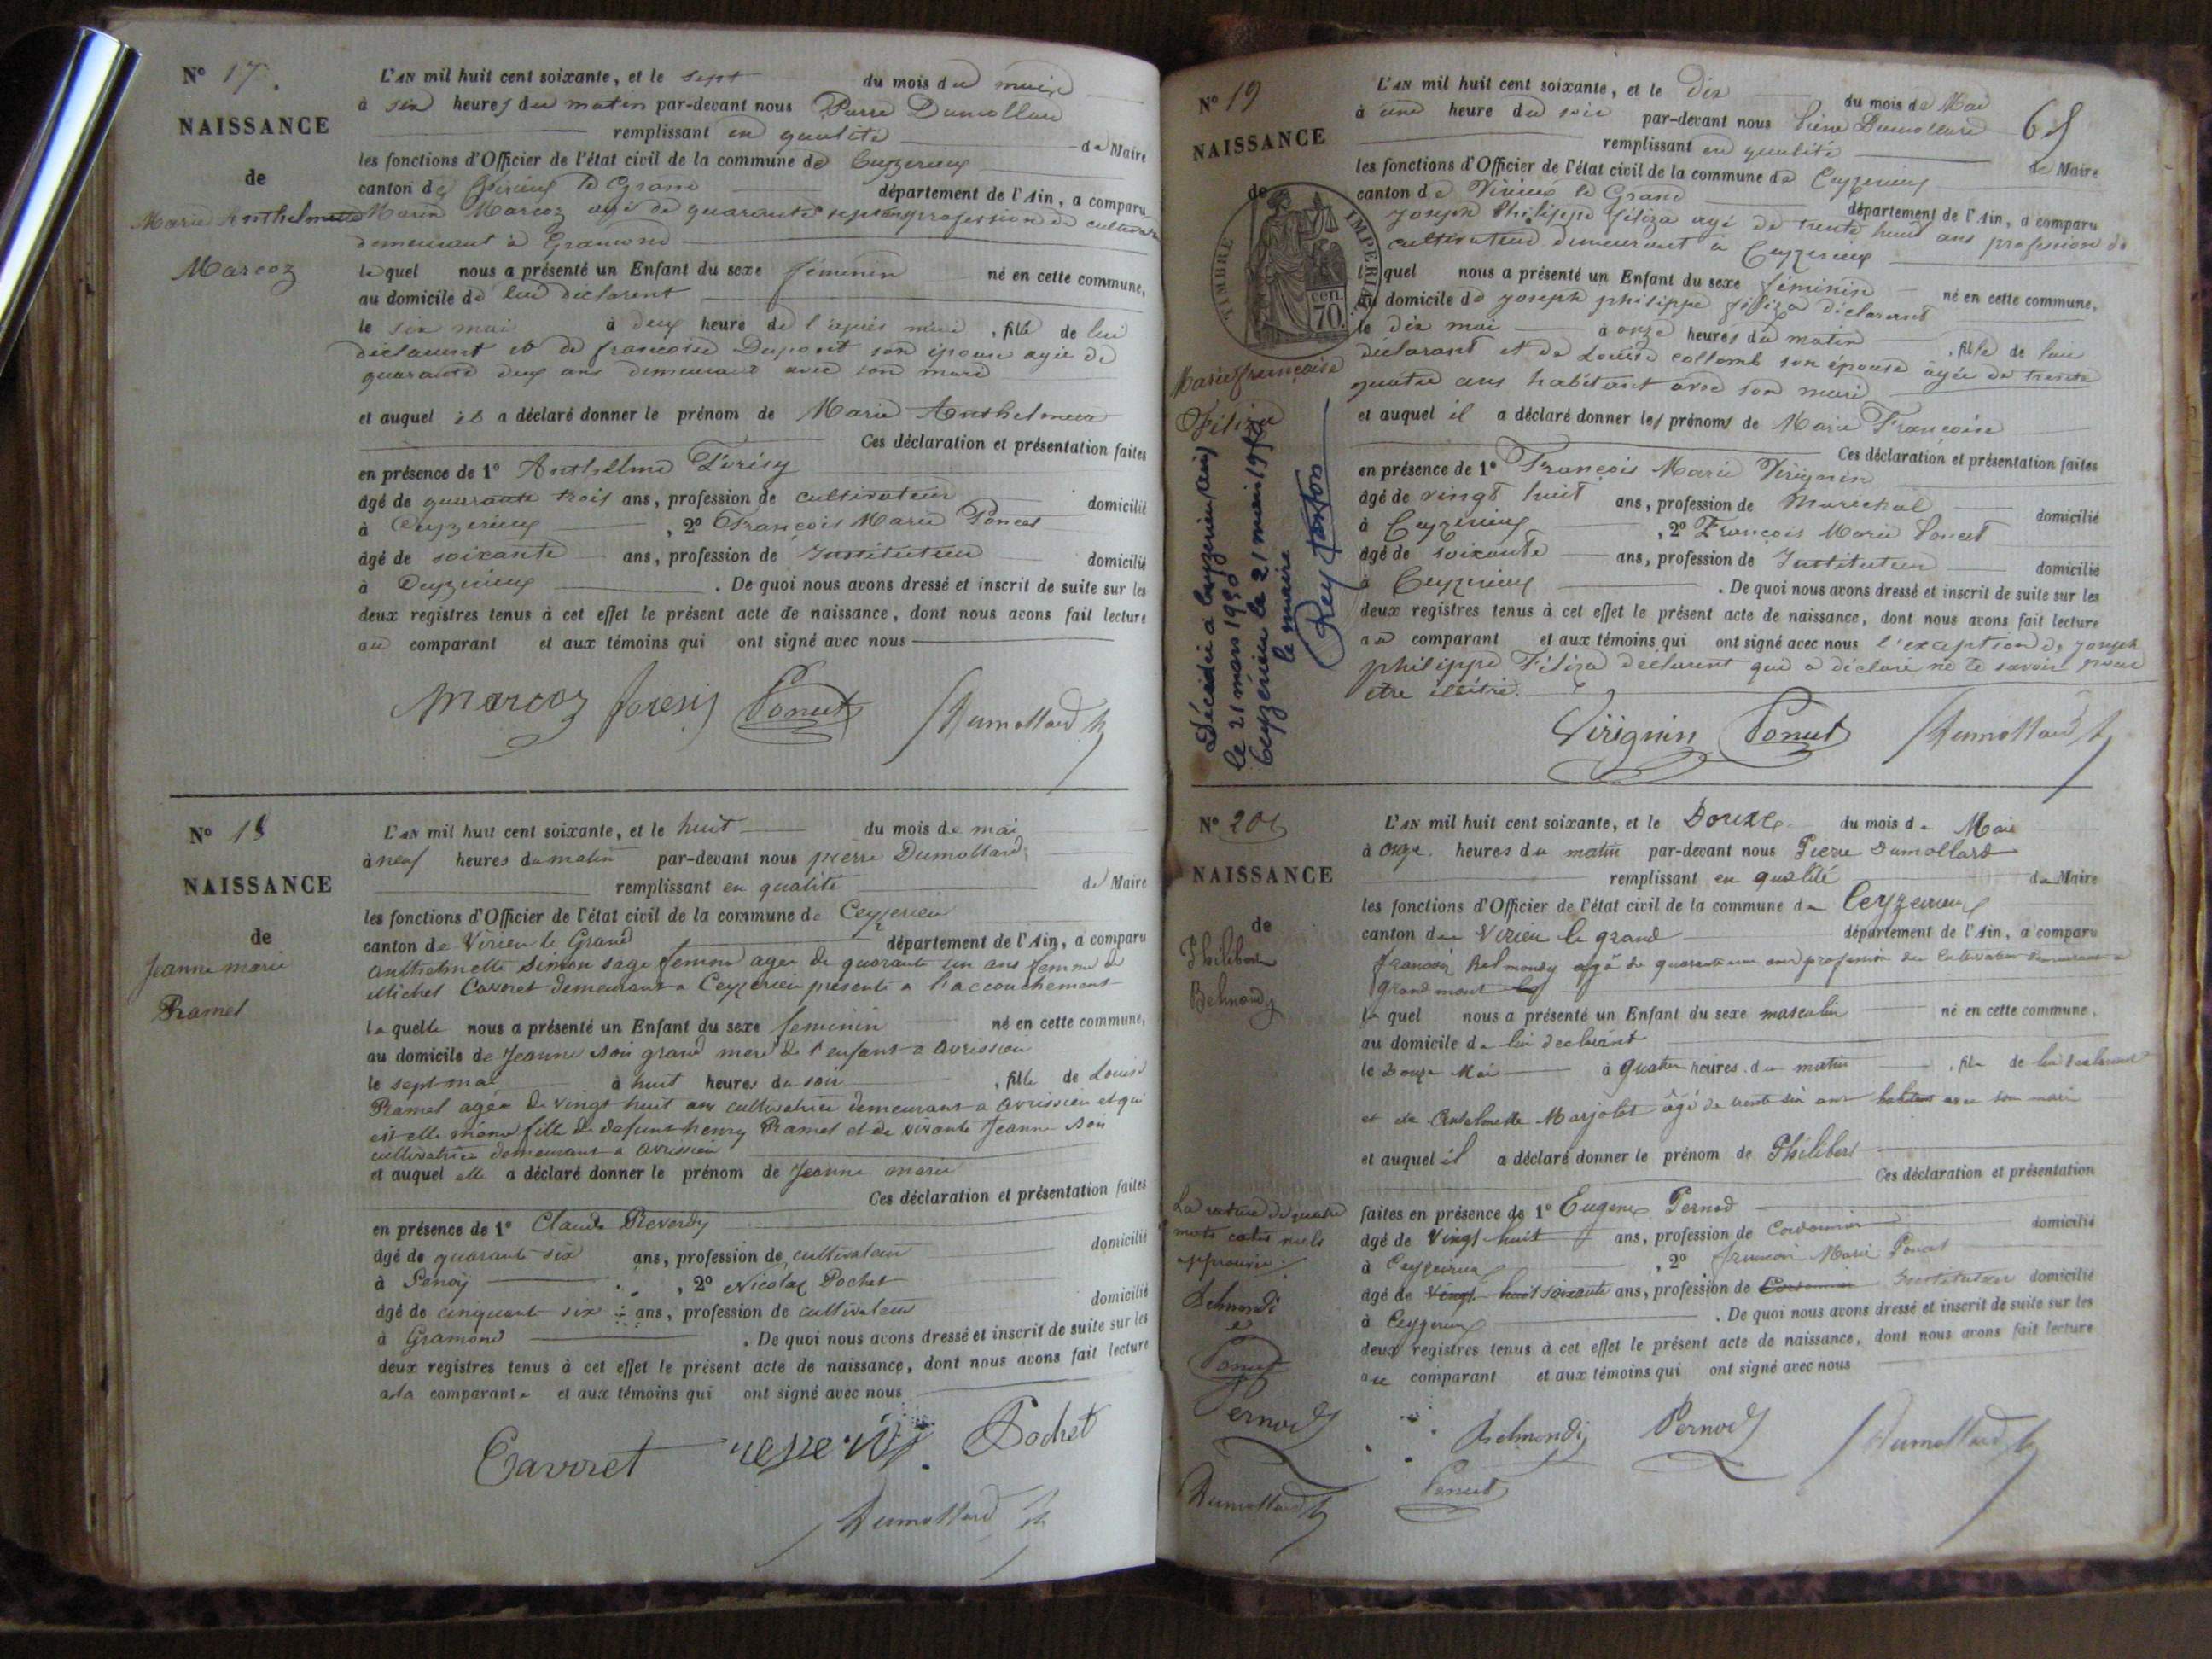 N° 17.
NAISSANCE
de
Marie Anthelmette
Marcoz
L'AN mil huit cent soixante, et le sept du mois de mai
à six heures du matin par-devant nous Pierre Dumollard
remplissant en qualité de Maire
les fonctions d'Officier de l'état civil de la commune de Ceyzerieux
canton de Virieux le Grand département de l'Ain, a comparu
Marin Marcoz agé de quarante sept ans profession de cultivateur
demeurant à Gramond
lequel nous a présenté un Enfant du sexe féminin né en cette commune,
au domicile de lui déclarent
le six mai à deux heure de l'après midi, fille de lui
déclarent et de francoise Dupont son épouse agée de
quarante deux ans demeurant avec son mari
et auquel il a déclaré donner le prénom de Marie Anthelmette
Ces déclaration et présentation faites
en présence de 1° Anthelme
âgé de quarante trois ans, profession de cultivateur domicilié
à Ceyzerieux, 2° François Marie Poncet
âgé de soixante ans, profession de Instituteur domicilié
à Ceyzerieux. De quoi nous avons dressé et inscrit de suite sur les
deux registres tenus à cet effet le présent acte de naissance, dont nous avons fait lecture
au comparant et aux témoins qui ont signé avec nous
Marcoz Poncet Dumollard
N° 18
NAISSANCE
de
Jeanne marie
Ramel
L'AN mil huit cent soixante, et le huit du mois de mai
à neuf heures du matin par-devant nous pierre Dumollard
remplissant en qualité de Maire
les fonctions d'Officier de l'état civil de la commune de Ceyzerieu
canton de Virieu le Grand département de l'Ain, a comparu
anthelmette Simon sage femme agee de quarante un ans femme de
Michel Cavoret demeurant a Ceyzerieu presente a l'accouchement
laquelle nous a présenté un Enfant du sexe feminin né en cette commune,
au domicile de Jeanne Soin grand mere de l'enfant a avrissieu
le sept mai à huit heures du soir, fille de Louise
Ramel agée de vingt huit ans cultivatrice demeurant a avrissieu et qui
est elle même fille de defunt henry Ramel et de vivante Jeanne Soin
cultivatrice demeurant a avrissieu
et auquel elle a déclaré donner le prénom de Jeanne marie
Ces déclaration et présentation faites
en présence de 1° Claude Reverdy
âgé de quarante six ans, profession de cultivateur domicilié
à, 2° Nicolas Pochet
âgé de cinquante six ans, profession de cultivateur domicilié
à Gramond. De quoi nous avons dressé et inscrit de suite sur les
deux registres tenus à cet effet le présent acte de naissance, dont nous avons fait lecture
a la comparante et aux témoins qui ont signé avec nous
Cavoret Pochet
Dumollard
N° 19
NAISSANCE
de
TIMBRE IMPERIAL
70 cen.
Marie françoise
Filiza
Décédée à Ceyzerieu (Ain)
le 21 mars 1950
Ceyzerieu le 21 mars 1950
le maire
L'AN mil huit cent soixante, et le dix du mois de Mai 65
à une heure du soir par-devant nous Pierre Dumollard
remplissant en qualité de Maire
les fonctions d'Officier de l'état civil de la commune de Ceyzerieux
canton de Virieux le Grand département de l'Ain, a comparu
Joseph Philippe Filiza agé de trente huit ans profession de
cultivateur demeurant à Ceyzerieux
lequel nous a présenté un Enfant du sexe féminin né en cette commune,
au domicile de joseph philippe filiza déclarent
le dix mai à onze heures du matin, fille de lui
déclarant et de Louise collomb son épouse agée de trente
quatre ans habitant avec son mari
et auquel il a déclaré donner les prénoms de Marie Françoise
Ces déclaration et présentation faites
en présence de 1° François Marie Virignin
âgé de vingt huit ans, profession de Maréchal domicilié
à Ceyzerieux, 2° François Marie Poncet
âgé de soixante ans, profession de Instituteur domicilié
à Ceyzerieux. De quoi nous avons dressé et inscrit de suite sur les
deux registres tenus à cet effet le présent acte de naissance, dont nous avons fait lecture
au comparant et aux témoins qui ont signé avec nous l'exception de joseph
philippe Filiza déclarent qui a déclaré ne le savoir pour
être illitré.
Virignin Poncet Dumollard
N° 20
NAISSANCE
de
Philibert
Belmondy
La rature de quatre
mots cotés nuls
approuvée.
Belmondi
Poncet
Pernod
Dumollard
L'AN mil huit cent soixante, et le Douze du mois de Mai
à onze heures du matin par-devant nous Pierre Dumollard
remplissant en qualité de Maire
les fonctions d'Officier de l'état civil de la commune de Ceyzerieux
canton de Virieu le grand département de l'Ain, a comparu
francois Belmondy agé de quarante un ans profession de Cultivateur demeurant a
Grand mont
lequel nous a présenté un Enfant du sexe masculin né en cette commune,
au domicile de lui declarant
le Douze Mai à quatre heures du matin, fils de lui declarant
et de Antelmette Marjolet âgé de trente six ans habitant avec son mari
et auquel il a déclaré donner le prénom de Philibert
Ces déclaration et présentation
faites en présence de 1° Eugene Pernod
âgé de vingt huit ans, profession de Cordonnier domicilié
à Ceyzerieux, 2° francois Marie Poncet
âgé de vingt huit soixante ans, profession de Cordonnier Instituteur domicilié
à Ceyzerieux. De quoi nous avons dressé et inscrit de suite sur les
deux registres tenus à cet effet le présent acte de naissance, dont nous avons fait lecture
au comparant et aux témoins qui ont signé avec nous
Belmondy Pernod Dumollard
Poncet